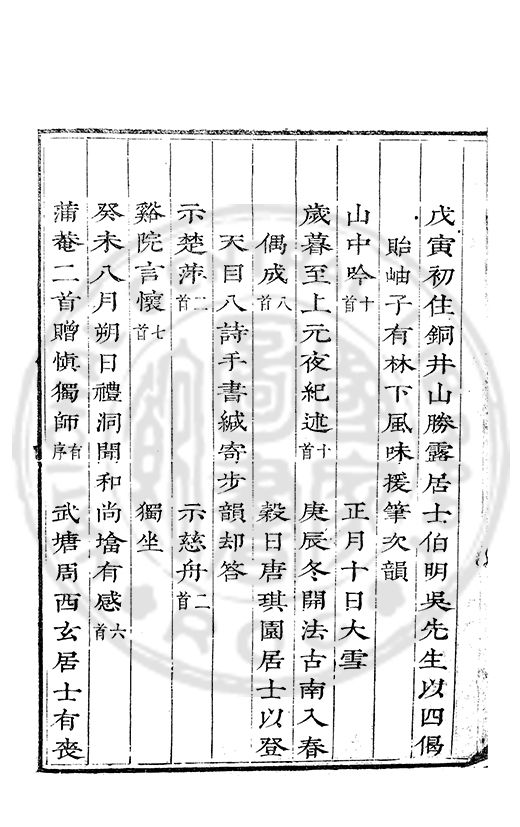 戊寅初住銅井山勝露居士伯明吳先生以四偈
貽岫子有林下風味援筆次韻
山中吟十首　正月十日大雪
歲暮至上元夜紀述十首　庚辰冬開法古南入春
偶成八首　穀日唐琪園居士以登
天目八詩手書緘寄步韻却答
示楚萍二首　示慈舟二首
谿院言懷七首　獨坐
癸未八月朔日禮洞聞和尚塔有感六首
蒲菴二首贈慎獨師有序　武塘周西玄居士有喪